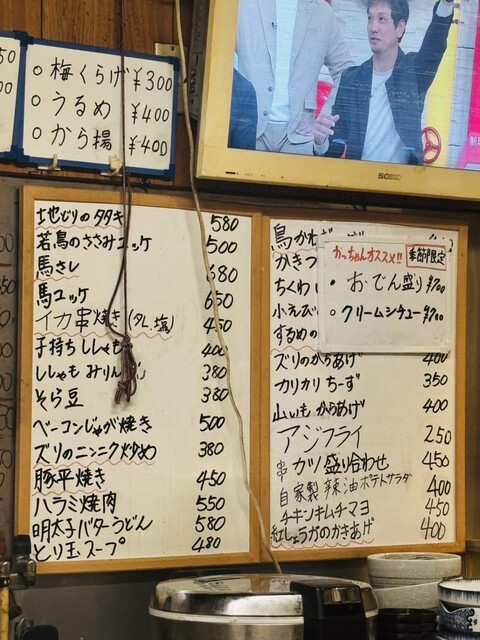 梅くらげ ¥300
うるめ ¥400
から揚 ¥400
SONIO
地どりのタタキ 580
若鳥のささみユッケ 500
馬さし 680
馬ユッケ 650
イカ串焼き(タレ.塩) 450
子持ちししゃも 400
ししゃもみりん 380
そら豆 380
ベーコンじゃが焼き 500
ズリのニンニク炒め 380
豚平焼き 450
ハラミ焼肉 550
明太子バターうどん 580
とり玉スープ 480
鳥かわ
かきつ
ちくわ
小えび
するめの
かっちゃんオススメ!! 季節限定
・おでん盛り ¥700
・クリームシチュー ¥700
ズリのからあげ 400
カリカリちーず 350
山いもからあげ 400
アジフライ 250
串カツ盛り合わせ 450
自家製辣油ポテトサラダ 400
チキンキムチマヨ 450
紅しょうがのかきあげ 400